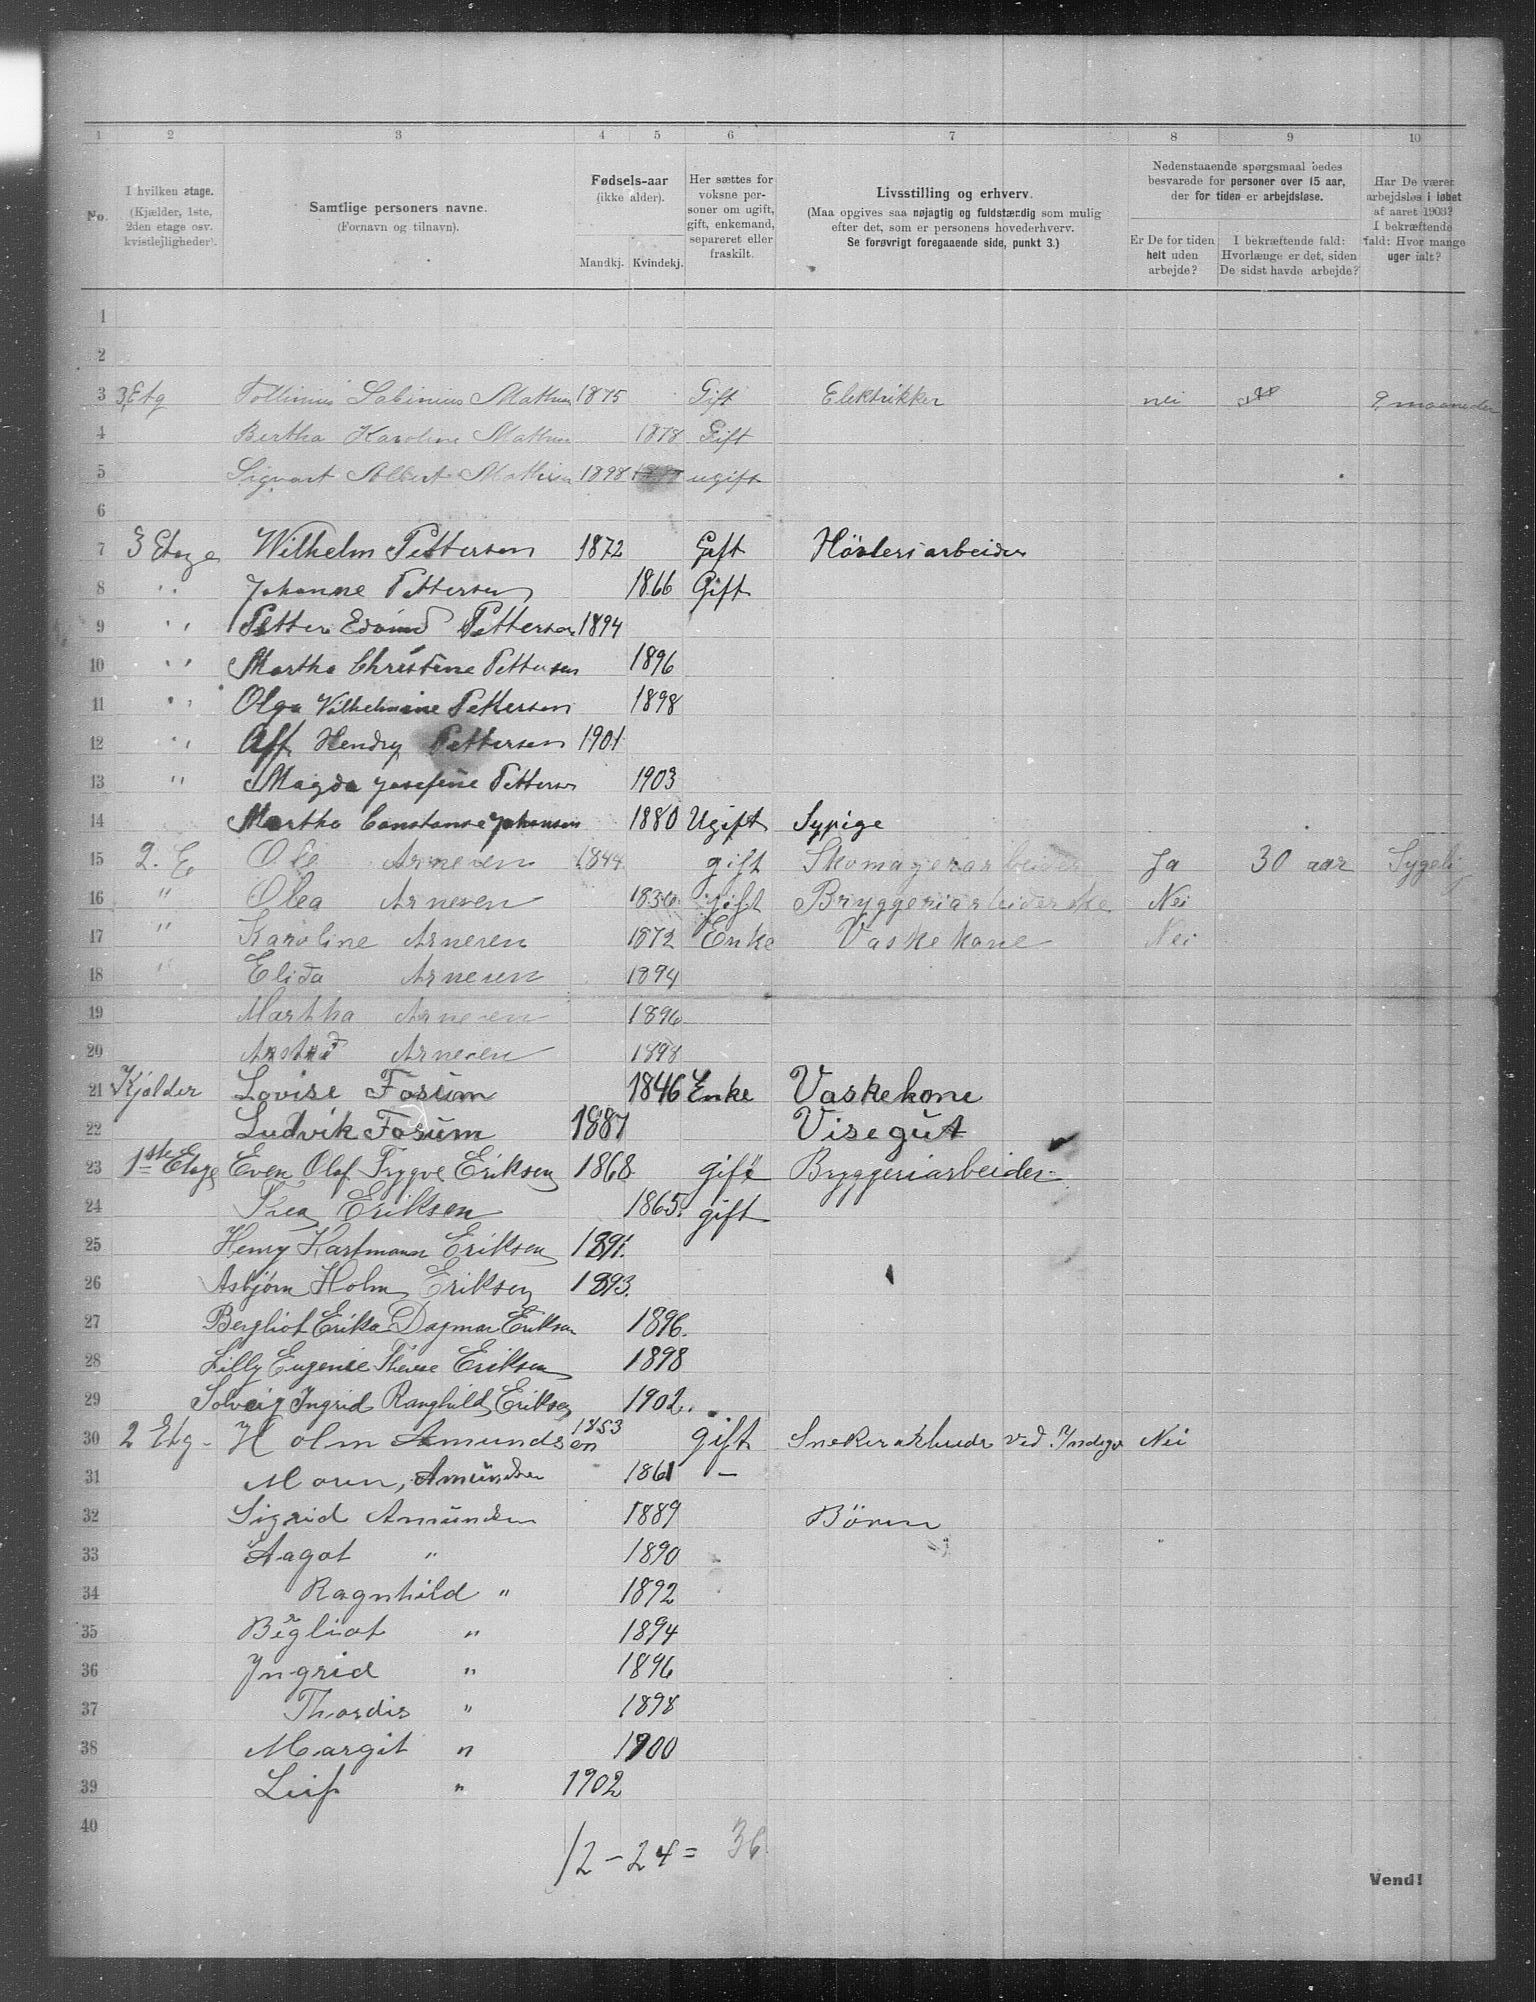 1 2 3 4 5 6 7 8 9 10
No.
I hvilken etage.
(Kjælder, 1ste,
2den etage osv.
kvistlejligheder).
Samtlige personers navne.
(Fornavn og tilnavn).
Fødsels-aar
(ikke alder).
Mandkj. Kvindekj.
Her sættes for
voksne per-
soner om ugift,
gift, enkemand,
separeret eller
fraskilt.
Livsstilling og erhverv.
(Maa opgives saa nøjagtig og fuldstændig som mulig
efter det, som er personens hovederhverv.
Se forøvrigt foregaaende side, punkt 3.)
Nedenstaaende spørgsmaal bedes
besvarede for personer over 15 aar,
der for tiden er arbejdsløse.
Er De for tiden
helt uden
arbejde?
I bekræftende fald:
Hvorlænge er det, siden
De sidst havde arbejde?
Har De været
arbejdsløs i løbet
af aaret 1903?
I bekræftende
fald: Hvor mange
uger ialt?
1
2
3 3 Etg Sabinius 1875 Gift Elektrikker nei 9 maaneder
4 Bertha Karoline 1878 Gift
5 Sigvart Albert 1898 ugift
6
7 3 Etage Wilhelm Pettersen 1872 Gift
8 " Johanne Pettersen 1866 Gift
9 " Petter Edvind Pettersen 1894
10 " Martha Christine Pettersen 1896
11 " Olga Vilhelmine Pettersen 1898
12 " Hendry Pettersen 1901
13 " Magda Josefine Petterse 1903
14 Martha Constanse Johansen 1880 Ugift Sypige
15 2. E Ole Arnesen 1844 gift Skomagerarbeider Ja 30 aar Sygelig
16 " Olea Arnesen 1836 gift Bryggeriarbeiderske Nei
17 " Karoline Arnesen 1872 Enke Vaskekone Nei
18 " Elida Arnesen 1894
19 Martha Arnesen 1896
20 Arnesen 1898
21 Kjelder Lovise Fosum 1846 Enke Vaskekone
22 Ludvik Fosum 1887 Visegut
23 1ste Etage Even Olaf Trygve Eriksen 1868 gift Bryggeriarbeider
24 Thea Eriksen 1865. gift
25 Henry Hartmann Eriksen 1891.
26 Asbjørn Holm Eriksen 1893.
27 Bergliot Erika Dagmar Eriksen 1896.
28 Lilly Eugenie Therese Eriksen 1898
29 Solveig Ingrid Ranghild Eriksen 1902.
30 2 Etg - Holm Amundsen 1853 gift ved Nei
31 Maren, Amundsen 1861 -
32 Sigrid Amundsen 1889 Børn
33 Aagot " 1890
34 Ragnhild " 1892
35 Bergliot " 1894
36 Ingrid " 1896
37 Thordis " 1898
38 Margit " 1900
39 Leif " 1902
40
12 - 24 = 36
Vend!